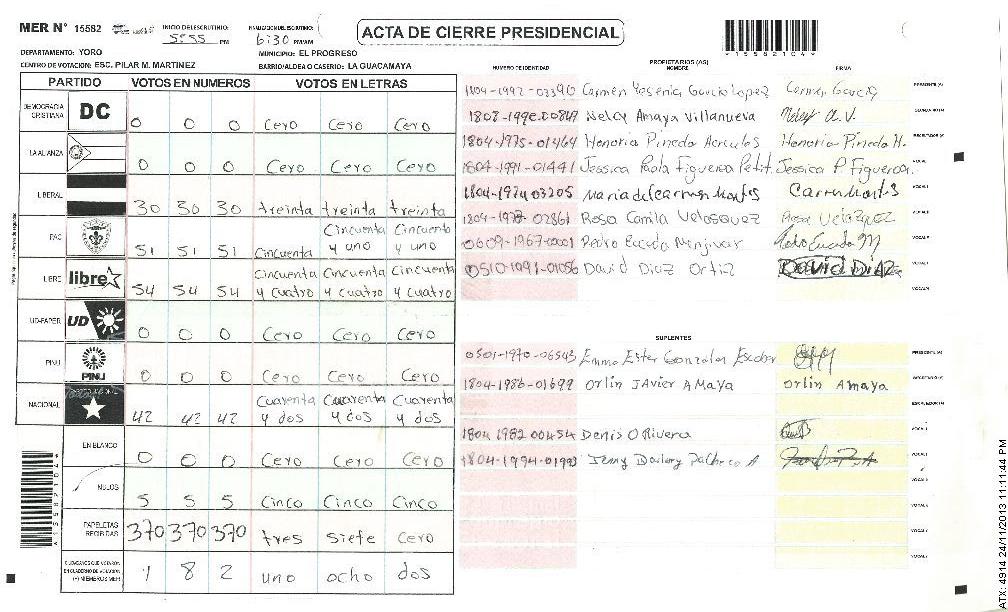 MER N° 15582
INICIO DEL ESCRUTINIO:
5:55 PM
6:30 PM/AM
ACTA DE CIERRE PRESIDENCIAL
*15582104*
DEPARTAMENTO: YORO
MUNICIPIO: EL PROGRESO
CENTRO DE VOTACION: ESC. PILAR M. MARTINEZ
BARRIO/ALDEA O CASERIO: LA GUACAMAYA
PARTIDO VOTOS EN NUMEROS VOTOS EN LETRAS
DEMOCRACIA CRISTIANA DC 0 0 0 Cero Cero Cero
LA ALIANZA 0 0 0 Cero Cero Cero
LIBERAL 30 30 30 treinta treinta treinta
PAC 51 51 51 Cincuenta Cincuenta y uno Cincuenta y uno
LIBRE libre 54 54 54 Cincuenta y cuatro Cincuenta y cuatro Cincuenta y cuatro
UD-FAPER UD 0 0 0 Cero Cero Cero
PINU PINU 0 0 0 Cero Cero Cero
NACIONAL 42 42 42 Cuarenta y dos Cuarenta y dos Cuarenta y dos
EN BLANCO 0 0 0 Cero Cero Cero
NULOS 5 5 5 Cinco Cinco Cinco
PAPELETAS RECIBIDAS 370 370 370 tres siete cero
CIUDADANOS QUE VOTARON EN CUADERNO DE VOTACION (+) MIEMBROS MER 1 8 2 uno ocho dos
PROPIETARIOS (AS)
NUMERO DE IDENTIDAD NOMBRE FIRMA
1804-1992-03390 Carmen Yesenia Garcia Lopez Carmen Garcia PRESIDENTE (A)
Nelcy Amaya Villanueva A.V.
1804-1975-01464 Honoria Pineda Honoria Pineda H.
1804-1991-01491 Jessica Paola Figueroa Petit. Jessica P. Figueroa.
1804-1974 03205 Maria del carmen
1804-1978-02861 Rosa Camila Velasquez Rosa Velazquez
0609-1967-00001 Pedro
0510-1991-01056 David Diaz Ortiz DAVID DIAZ
SUPLENTES
0501-1970-06543 Emma Ester Gonzales Escobar PRESIDENTE (A)
1804-1986-01699 Orlin JAvier AMaya Orlin Amaya
1804 1982 00454 Denis O Rivera
1804-1994-01993 Jenny Pacheco A
ATX: 4914 24/11/2013 11:11:44 PM